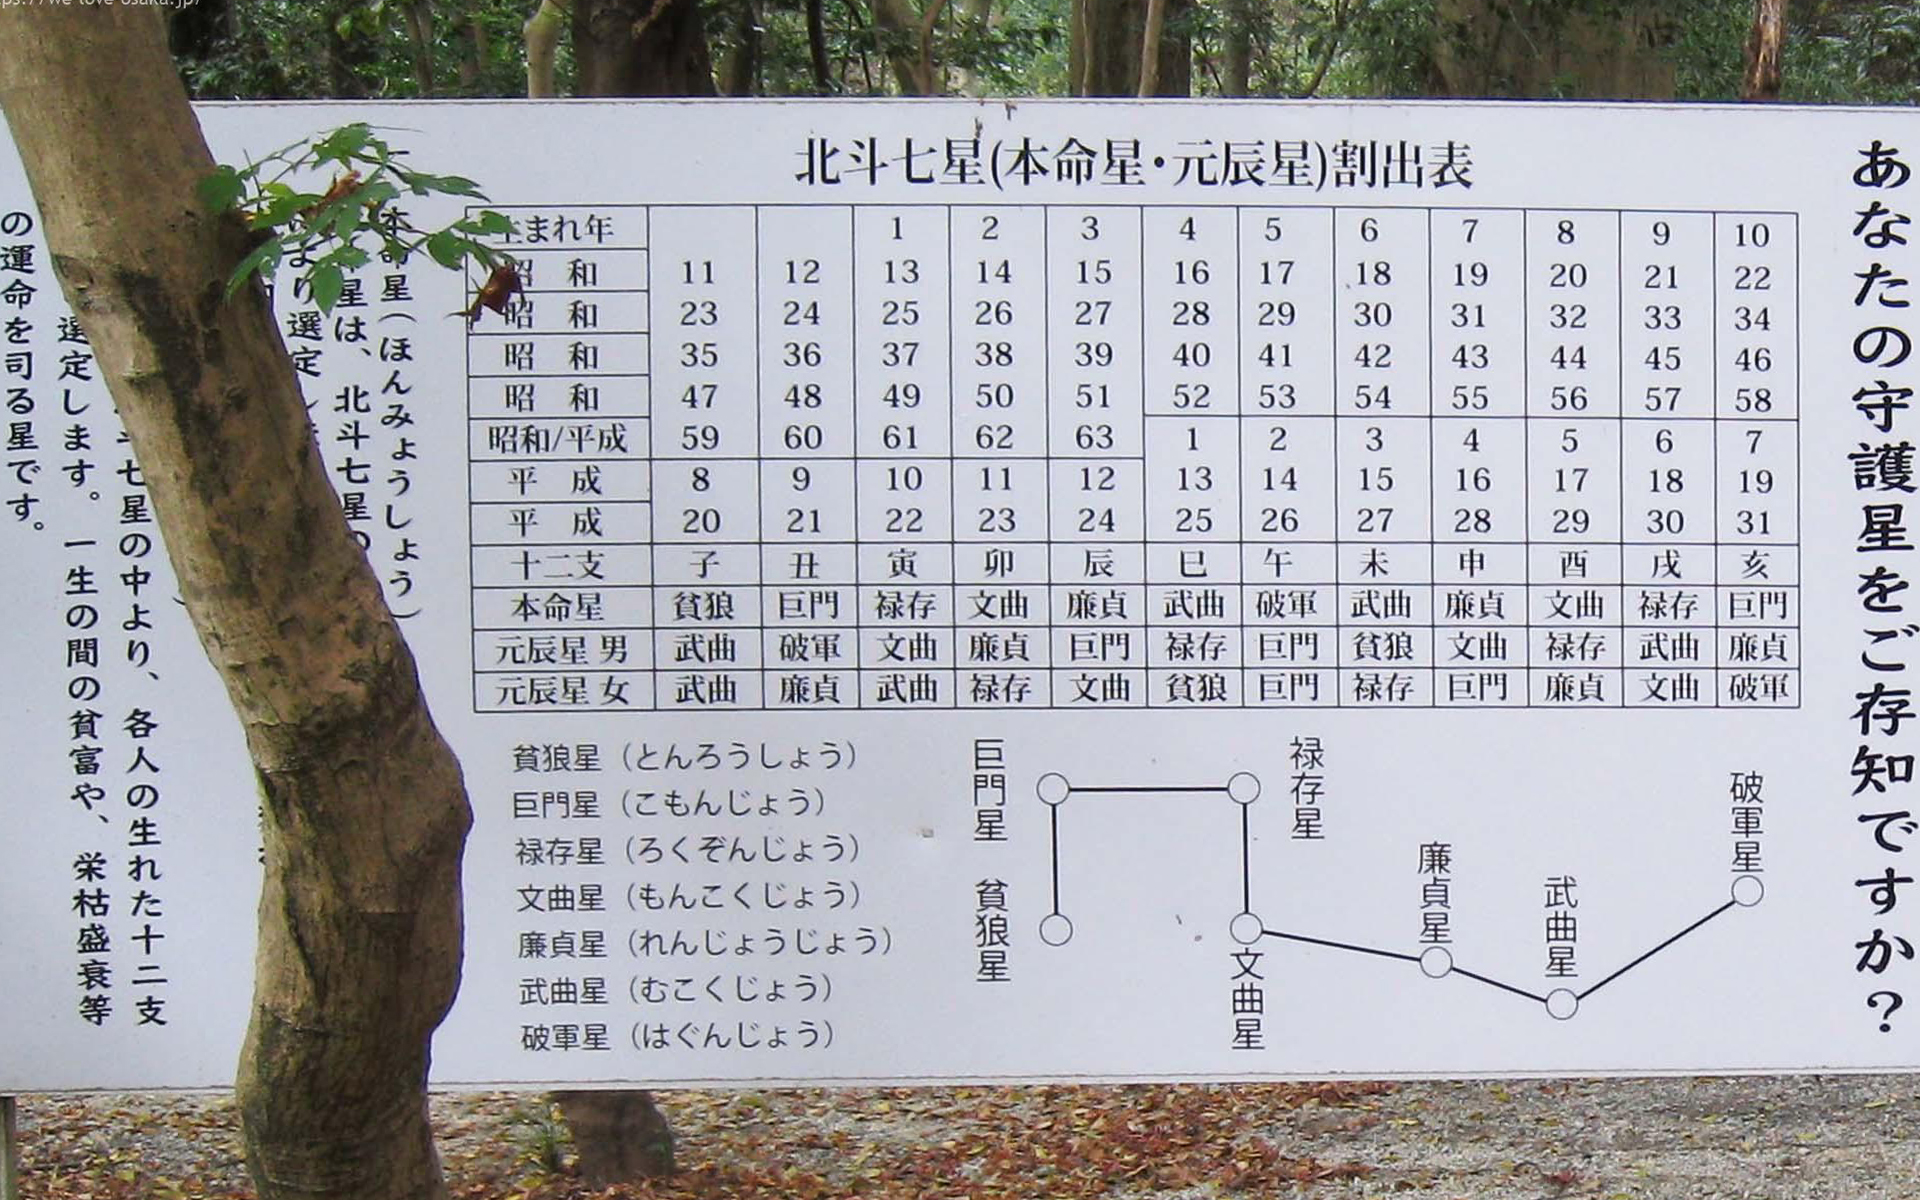 あなたの守護星をご存知ですか?
北斗七星(本命星・元辰星)割出表
生まれ年 1 2 3 4 5 6 7 8 9 10
昭 和 11 12 13 14 15 16 17 18 19 20 21 22
昭 和 23 24 25 26 27 28 29 30 31 32 33 34
昭 和 35 36 37 38 39 40 41 42 43 44 45 46
昭 和 47 48 49 50 51 52 53 54 55 56 57 58
昭和/平成 59 60 61 62 63 1 2 3 4 5 6 7
平 成 8 9 10 11 12 13 14 15 16 17 18 19
平 成 20 21 22 23 24 25 26 27 28 29 30 31
十二支 子 丑 寅 卯 辰 巳 午 未 申 酉 戌 亥
本命星 貧狼 巨門 禄存 文曲 廉貞 武曲 破軍 武曲 廉貞 文曲 禄存 巨門
元辰星 男 武曲 破軍 文曲 廉貞 巨門 禄存 巨門 貧狼 文曲 禄存 武曲 廉貞
元辰星 女 武曲 廉貞 武曲 禄存 文曲 貧狼 巨門 禄存 巨門 廉貞 文曲 破軍
貧狼星(とんろうしょう)
巨門星(こもんじょう)
禄存星(ろくぞんじょう)
文曲星(もんこくじょう)
廉貞星(れんじょうじょう)
武曲星(むこくじょう)
破軍星(はぐんじょう)
巨門星
禄存星
破軍星
廉貞星
武曲星
貧狼星
文曲星
星(ほんみょうしょう)
星は、北斗七星の
より選定
七星の中より、各人の生れた十二支
選定します。一生の間の貧富や、栄枯盛衰等
の運命を司る星です。